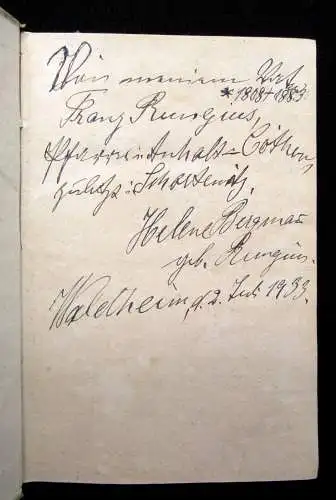 Von meinem Vat
* 1808 + 1883.
Franz Rungius,
Pfarrer i. Anhalt-Cöthen,
zuletzt i. Schortewitz,
Helene Bergmann
geb. Rungius.
Waldheim, d. 2. Juli 1933.